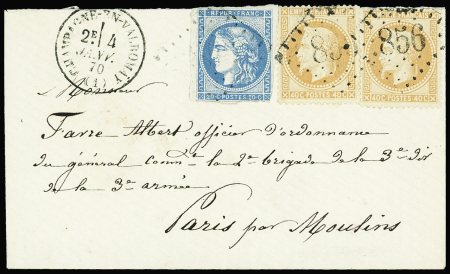 CHAMPAGNE-EN-VALROMEY
2E 4
JANV.
70
(1)
REPUB. FRANC.
20 C. POSTES 20 C.
40 C. POSTES 40 C.
40 C. POSTES 40 C.
856
Monsieur
Favre Albert officier d'ordonnance
du général Comt la 2e brigade de la 3e don
de la 3e armée
Paris par Moulins